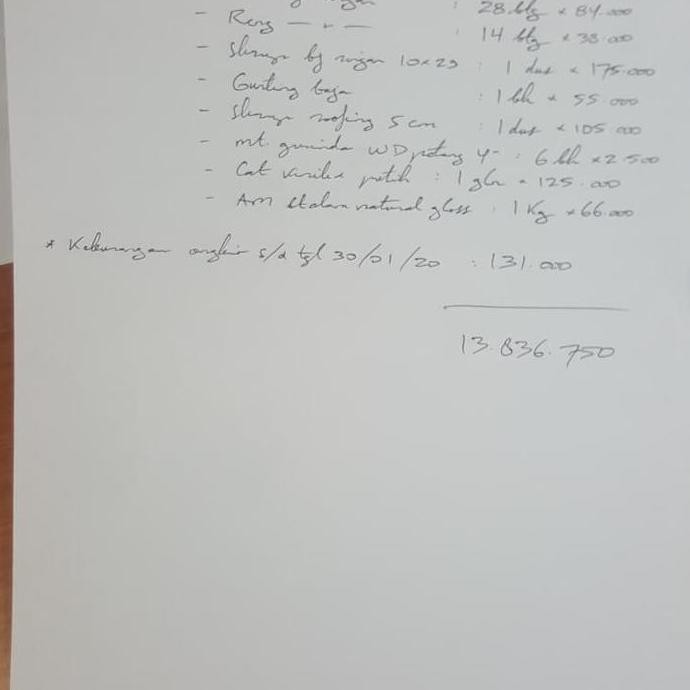 : 28 btg x 84.000
- Reng — " — : 14 btg x 38.000
- Skrup bj ringan 10x25 : 1 dus x 175.000
- Gunting baja : 1 bh x 55.000
- Skrup roofing 5 cm : 1 dus x 105.000
- mt. gurinda WD potong 4" : 6 bh x 2.500
- Cat putih : 1 gln x 125.000
- natural gloss : 1 Kg x 66.000
* Kekurangan ongkir s/d tgl 30/01/20 : 131.000
13.836.750